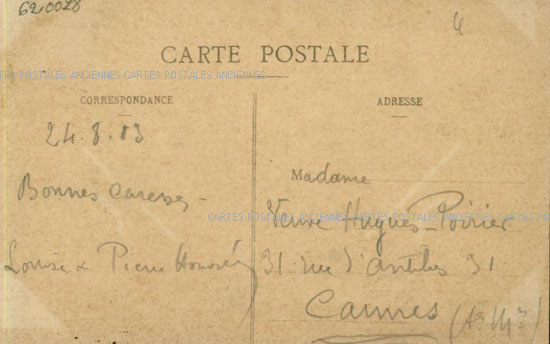 620028
4
CARTE POSTALE
CARTES POSTALES ANCIENNES CARTES POSTALES ANCIENNES
CORRESPONDANCE
24.8.13
Bonnes caresses -
Louise & Pierre Honoré
ADRESSE
Madame
CARTES POSTALES ANCIENNES CARTES POSTALES ANCIENNES
Veuve Hugues-Poirier
31 rue d'antibes 31
Cannes (As Mes)